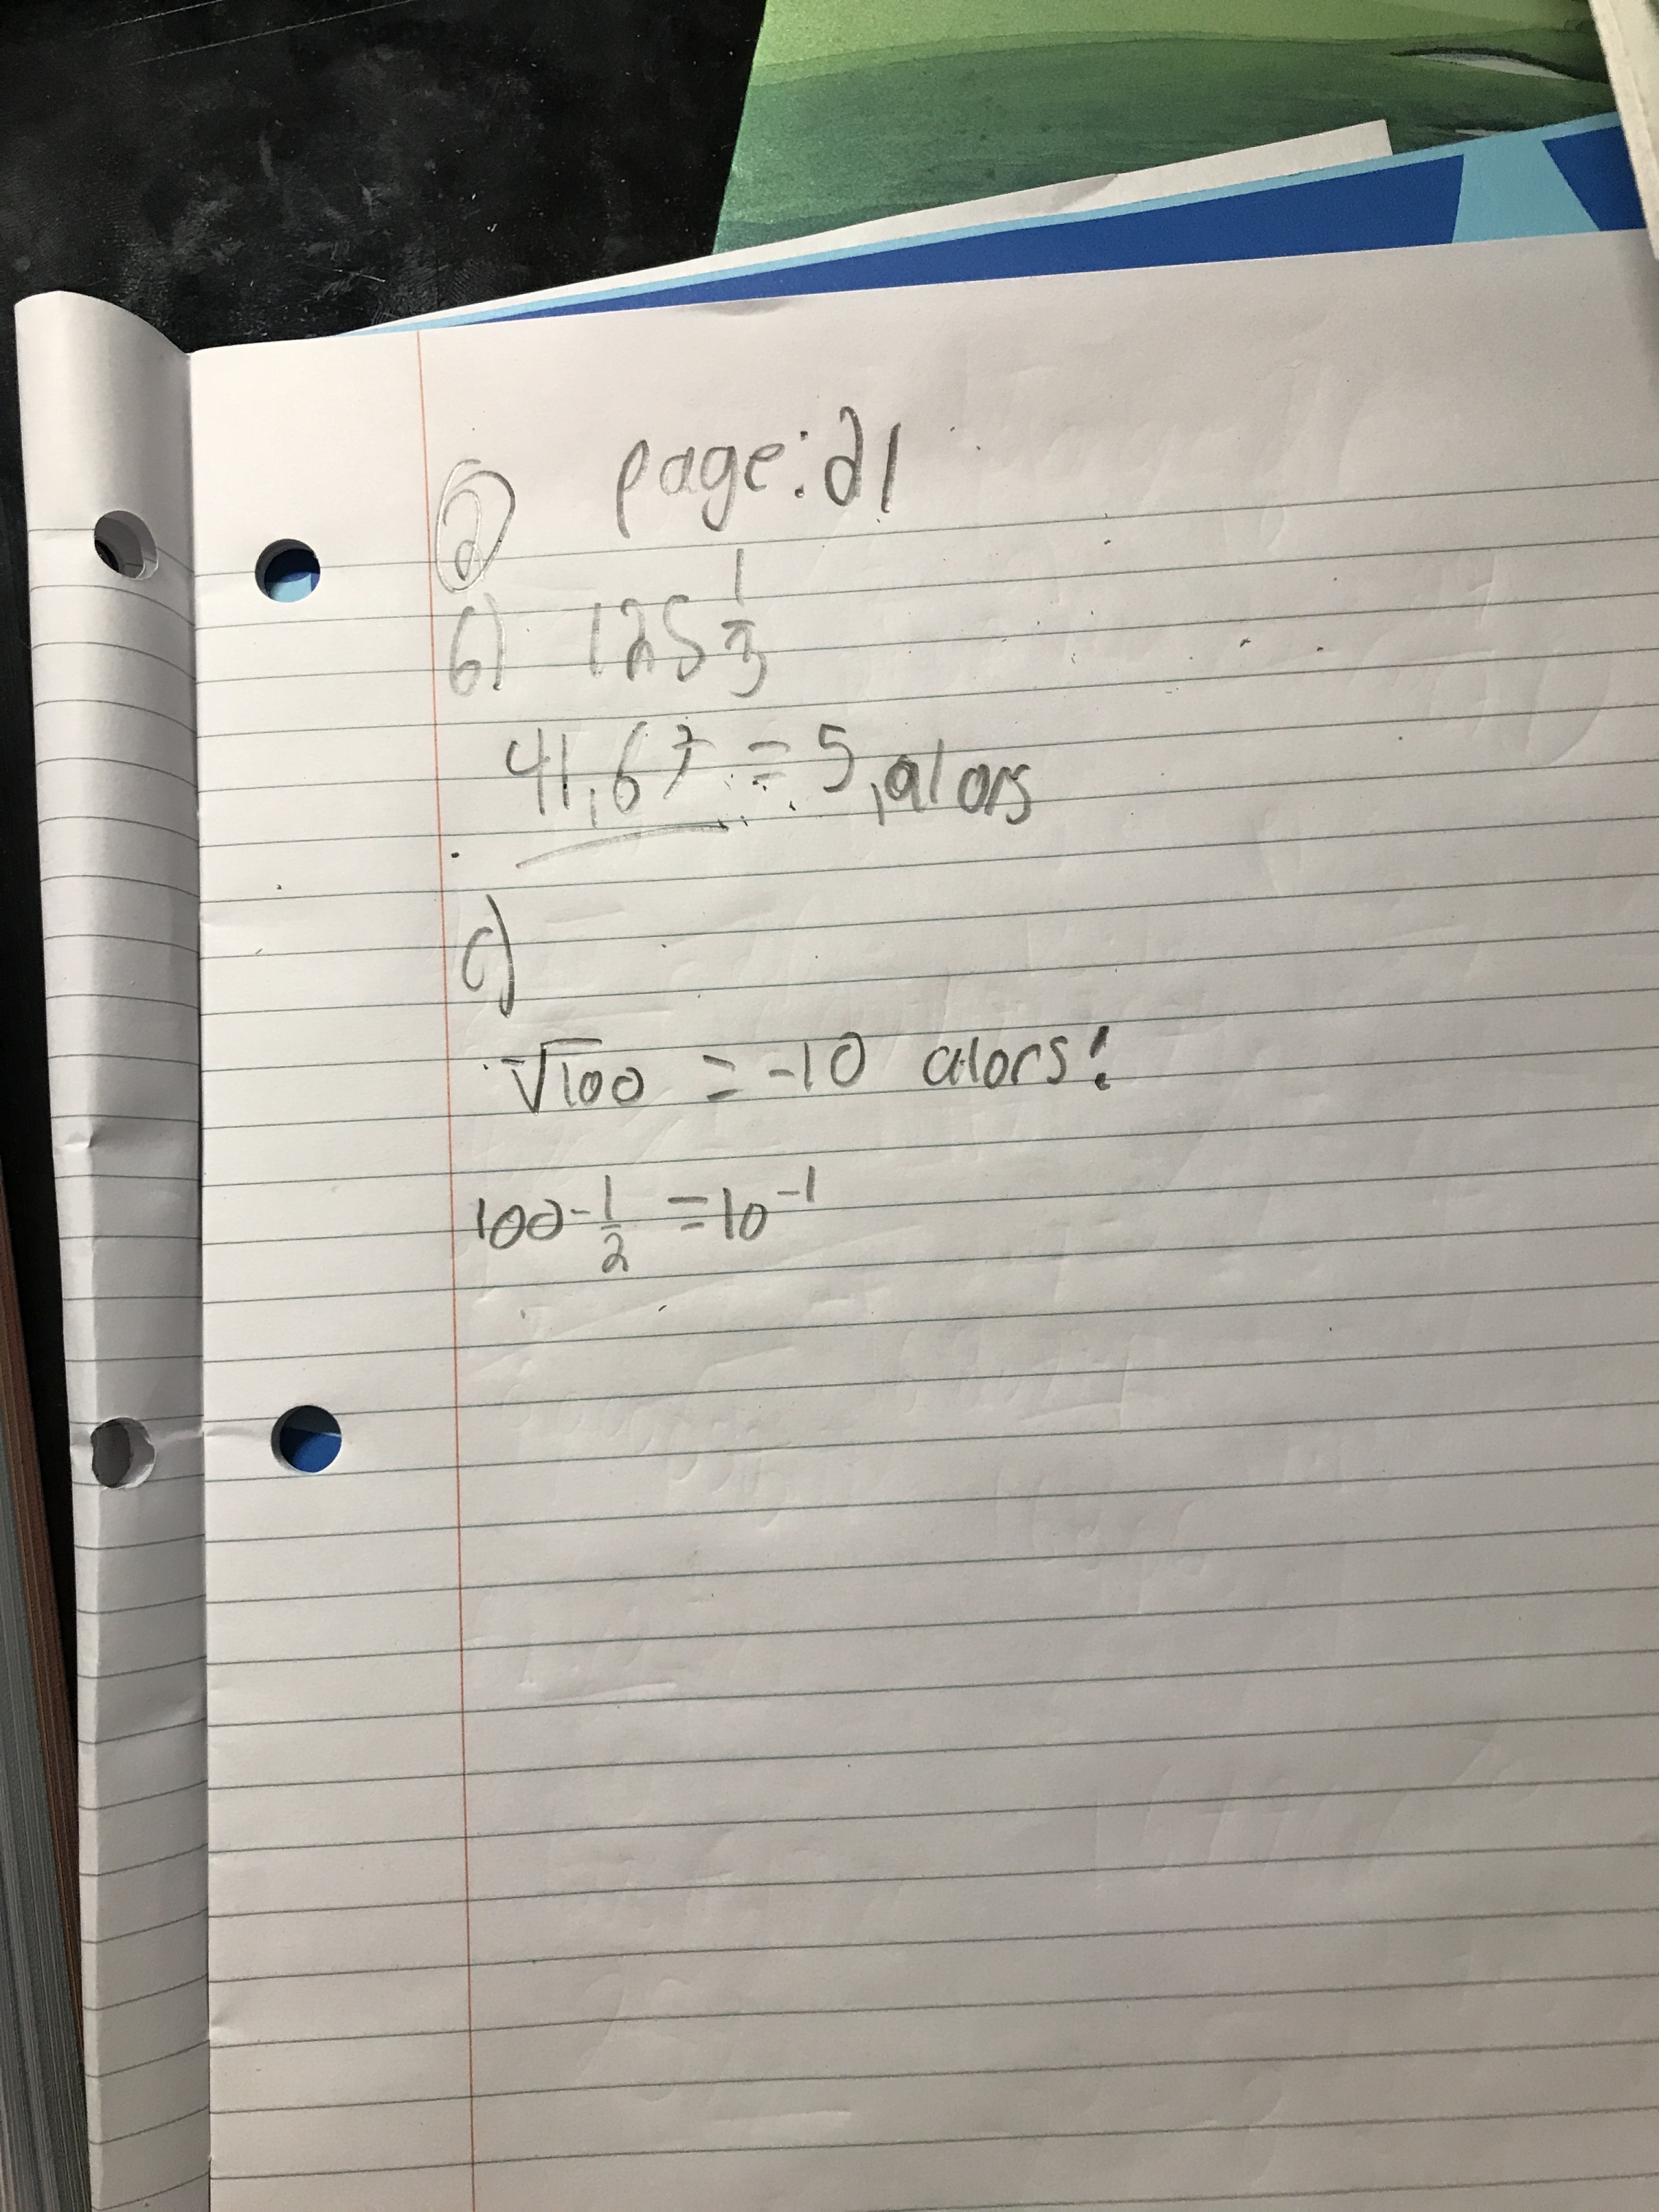 ② page: 21
b) 125 1/3
41,67 = 5, alors
c)
-√100 = -10 alors!
100 -1/2 = 10 -1